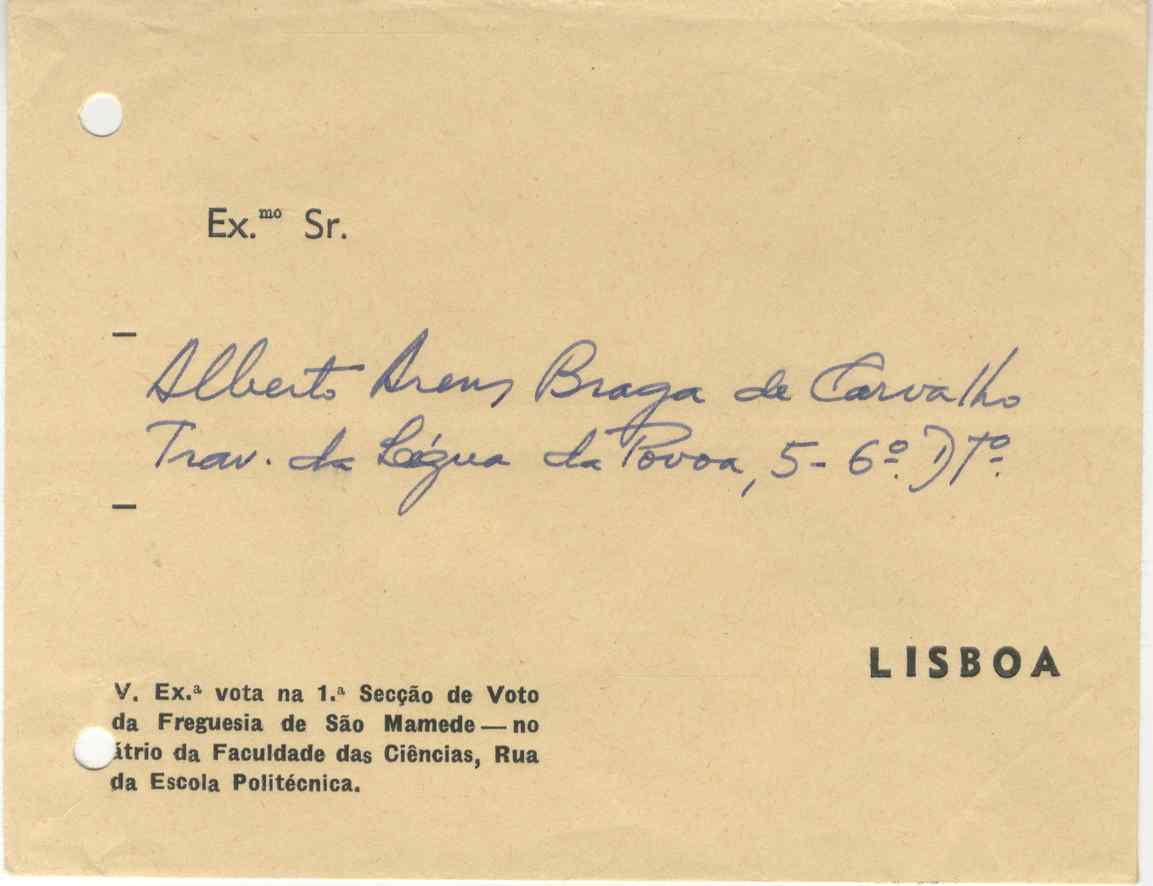 Ex.mo Sr.
Alberto Arens Braga de Carvalho
Trav. da Légua da Povoa, 5-6º. Dtº.
LISBOA
V. Ex.ª vota na 1.ª Secção de Voto
da Freguesia de São Mamede — no
átrio da Faculdade das Ciências, Rua
da Escola Politécnica.